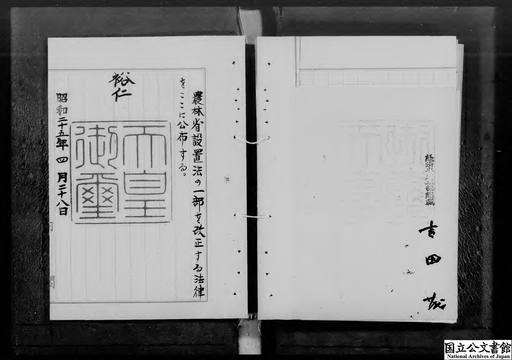 農林省設置法の一部を改正する法律
をここに公布する。
裕仁
天皇
御璽
昭和二十五年四月二十八日
吉田茂
国立公文書館
National Archives of Japan